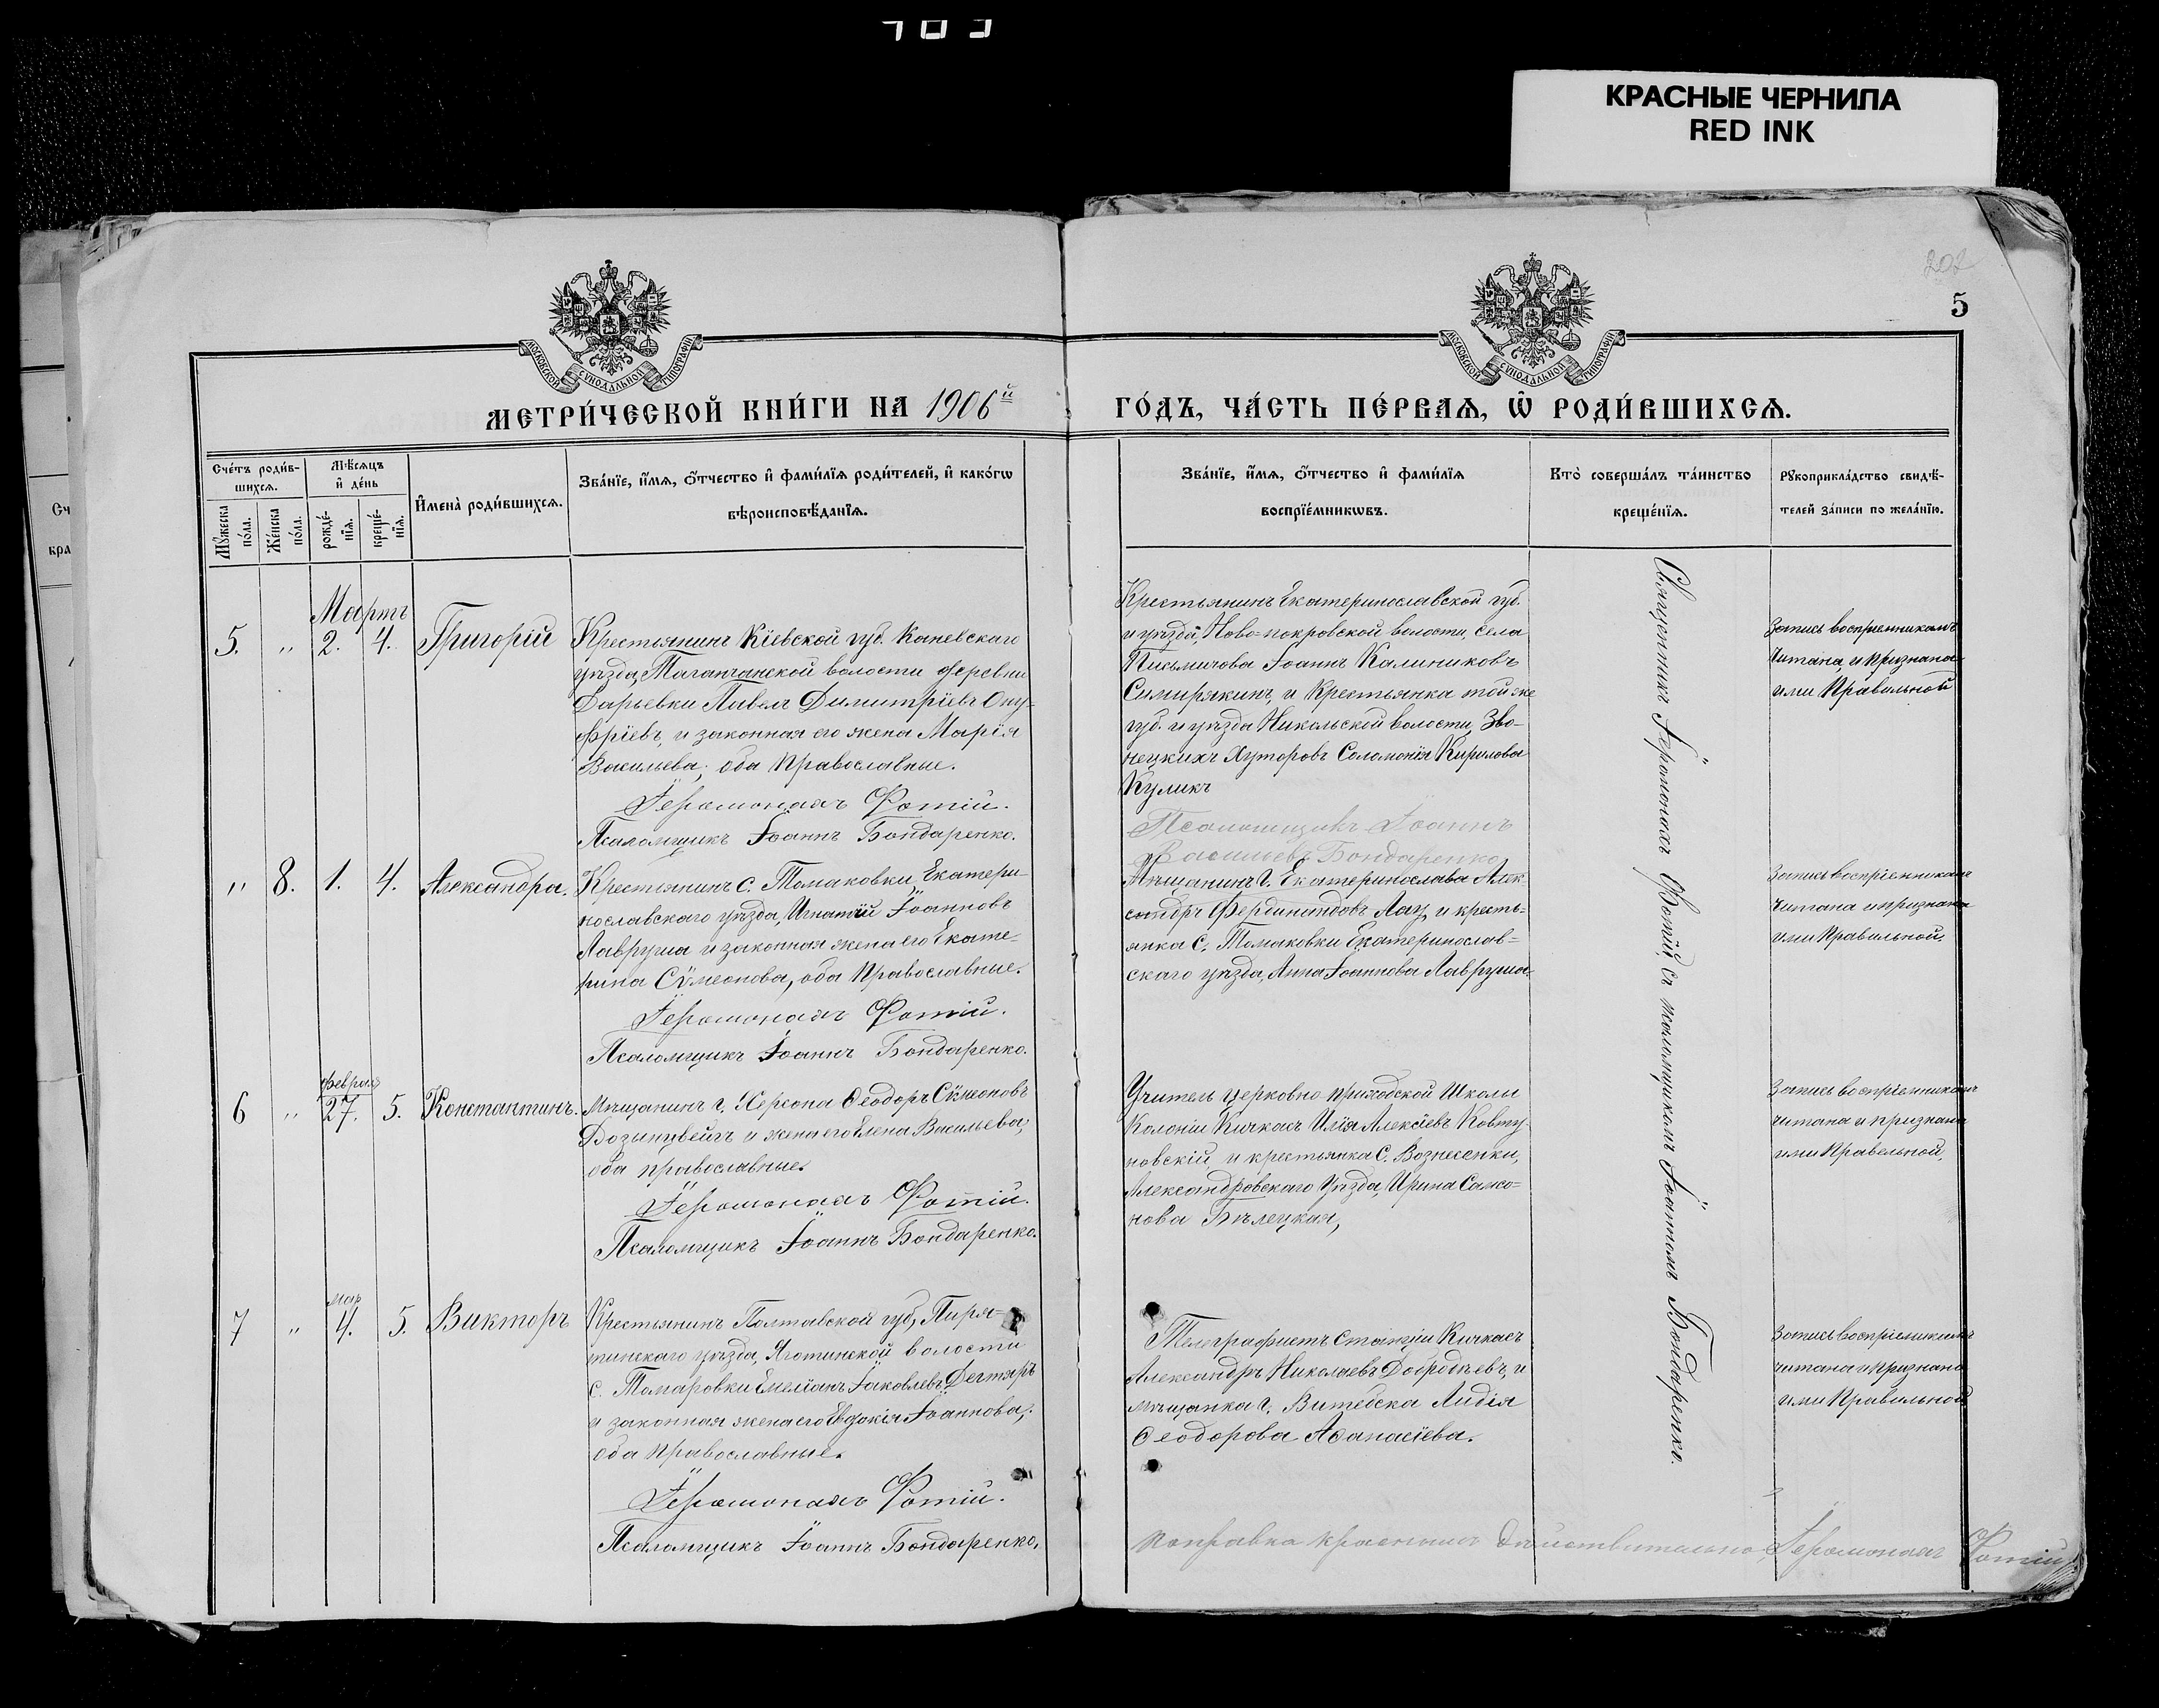 КРАСНЫЕ ЧЕРНИЛА
RED INK
202
5
МОСКОВСКОЙ СѴНОДАЛЬНОЙ ТИПОГРАФІИ
МОСКОВСКОЙ СѴНОДАЛЬНОЙ ТИПОГРАФІИ
МЕТРИ́ЧЕСКОЙ КНИ́ГИ НА 1906й
ГО́ДЪ, ЧА́СТЬ ПЕ́РВАѦ, Ѡ РОДИ́ВШИХСѦ.
Сче́тъ роди́в-
шихсѧ.
Мꙋ́жеска
по́ла.
Же́нска
по́ла.
Мѣ́сѧцъ
и҆ де́нь
рожде́-
нїѧ.
креще́-
нїѧ.
И҆мена̀ роди́вшихсѧ.
Зва́нїе, и҆́мѧ, ѻ҆́тчество и҆ фами́лїѧ роди́телей, и҆ како́гѡ
вѣроисповѣ́данїѧ.
Зва́нїе, и҆́мѧ, ѻ҆́тчество и҆ фами́лїѧ
воспрїе́мникѡвъ.
Кто̀ соверша́лъ та́инство
креще́нїѧ.
Рꙋкоприкла́дство свидѣ́-
телей за́писи по жела́нїю.
Мартъ
5. " 2. 4. Григорій
Крестьянинъ Кіевской губ. Каневскаго
уѣзда, Таганчанской волости деревни
Дарьевки Павелъ Димитріевъ Ону-
фріевъ, и законная его жена Марія
Васильева, оба православные.
Іеромонахъ Фотій.
Псаломщикъ Іоаннъ Бондаренко.
Крестьянинъ Екатеринославской губ.
и уѣзда, Ново-покровской волости, села
Письмичова Іоаннъ Калиниковъ
Симирякинъ, и Крестьянка той же
губ. и уѣзда Никольской волости, Зво-
нецкихъ Хуторовъ Соломонія Кирилова
Куликъ
Псаломщикъ Іоаннъ
Васильевъ Бондаренко
Запись воспріемникамъ
читана, и признана
ими правильной
" 8. 1. 4. Александра.
Крестьянинъ с. Томаковки, Екатери-
нославскаго уѣзда, Игнатій Іоанновъ
Лавруша и законная жена его Екате-
рина Сѵмеонова, оба православные.
Іеромонахъ Фотій.
Псаломщикъ Іоаннъ Бондаренко.
Мѣщанинъ г. Екатеринослава Алек-
сандръ Фердинандовъ Лау, и кресть-
янка с. Томаковки Екатеринослав-
скаго уѣзда, Анна Іоаннова Лавруша.
Запись воспріемникамъ
читана и признана
ими правильной.
Февраля
6 " 27. 5. Константинъ.
Мѣщанинъ г. Херсона Ѳеодоръ Сѵмеоновъ
Дозынцвейгъ и жена его Елена Васильева,
оба православные.
Іеромонахъ Фотій.
Псаломщикъ Іоаннъ Бондаренко.
Учитель церковно приходской школы
Колоніи Кичкасъ Илія Алексіевъ Ковту-
новскій, и крестьянка с. Вознесенки,
Александровскаго уѣзда, Ирина Самсо-
нова Бѣлецкая,
Запись воспріемникамъ
читана и признана
ими правельной.
мар
7 " 4. 5. Викторъ
Крестьянинъ Полтавской губ, Пиря-
тинскаго уѣзда, Яготинской волости
с. Томаровки Емеліанъ Іаковлевъ Дегтярь
и законная жена его Евдокія Іоаннова,
оба православные.
Іеромонахъ Фотій.
Псаломщикъ Іоаннъ Бондаренко,
Телеграфистъ Станціи Кичкасъ
Александръ Николаевъ Добродѣевъ, и
мѣщанка г. Витебска Лидія
Ѳеодорова Аѳанасіева.
Запись воспріемникамъ
читана и признана
ими правильной
Священникъ Іеромонахъ Фотій, съ псаломщикомъ Іоанномъ Бондаренко.
поправка красными дѣйствительна, Іеромонахъ Фотій